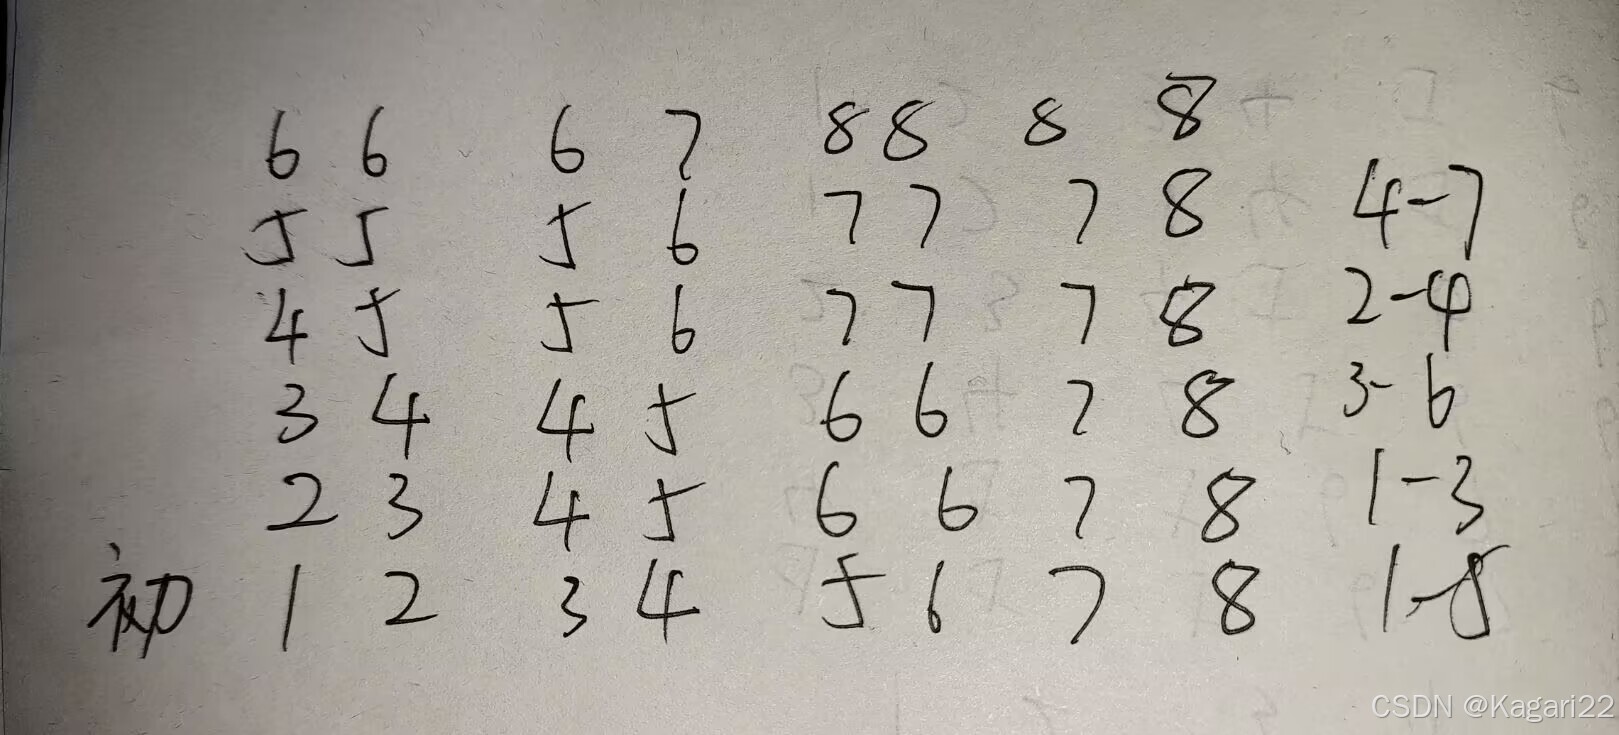 6 6 6 7 8 8 8 8
5 5 5 6 7 7 7 8 4-7
4 5 5 6 7 7 7 8 2-4
3 4 4 5 6 6 7 8 3-6
2 3 4 5 6 6 7 8 1-3
初 1 2 3 4 5 6 7 8 1-5
CSDN @Kagari22